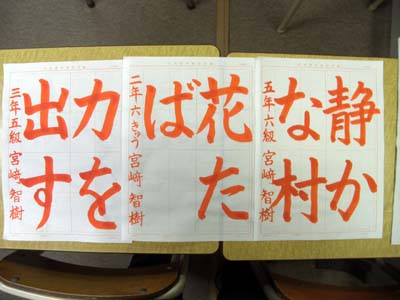 静か
な村
五年六級 宮﨑 智樹
花た
ば
二年六きゅう 宮﨑 智樹
力を
出す
三年五級 宮﨑 智樹